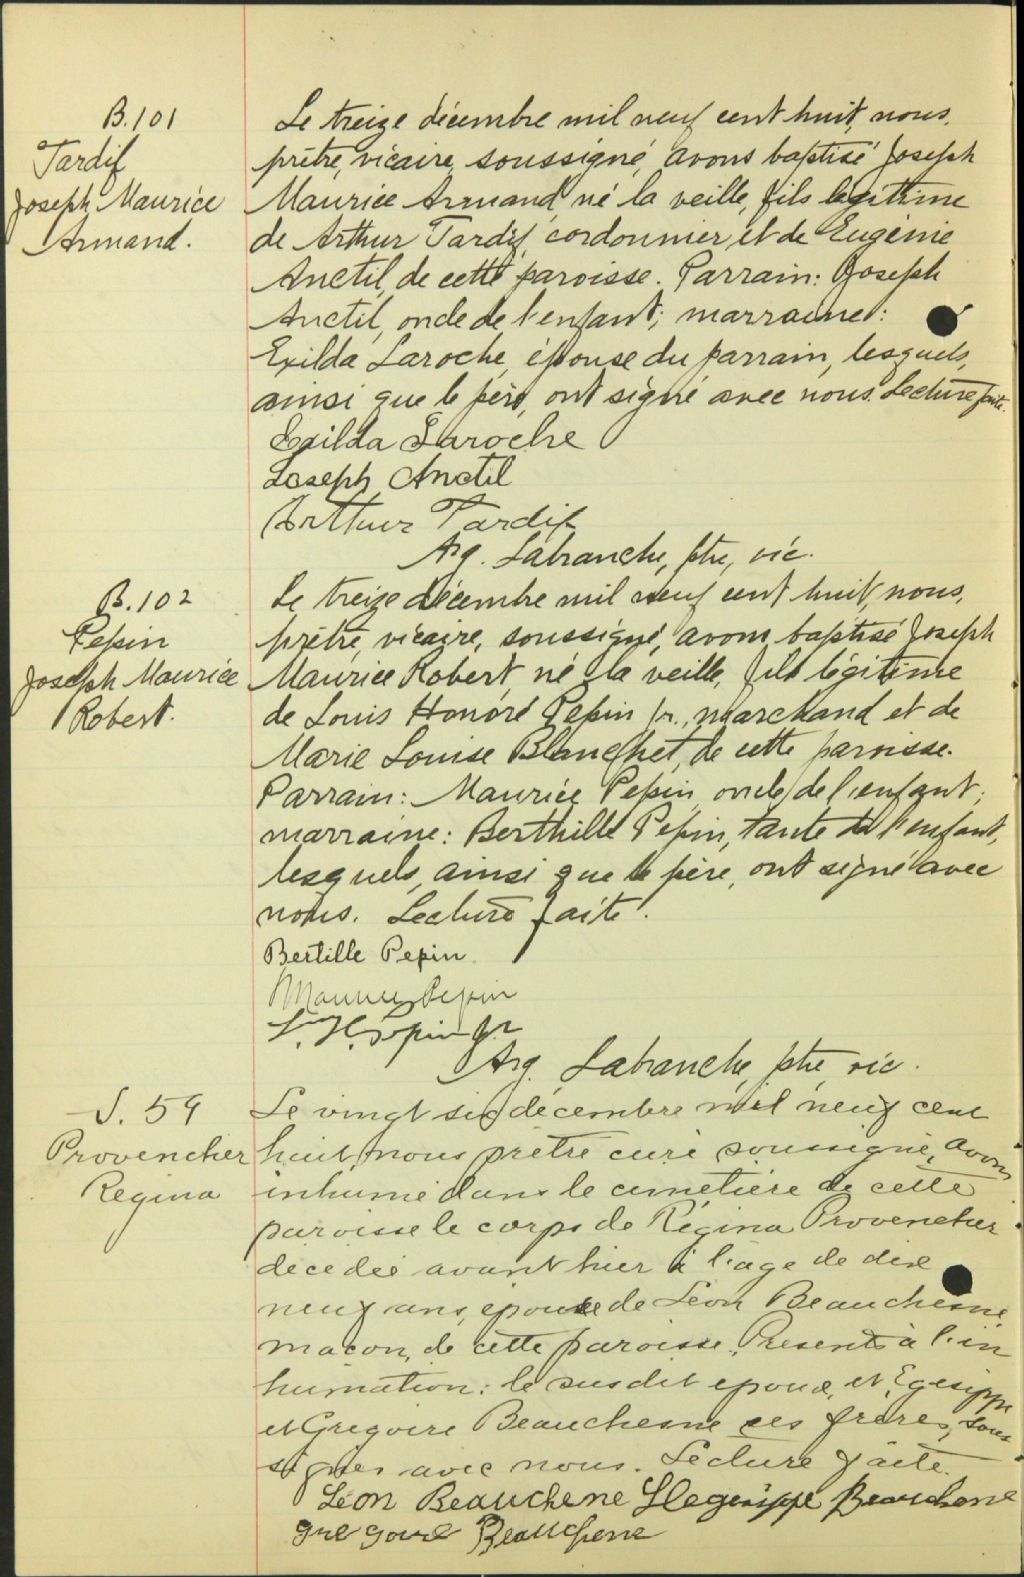 B.101
Tardif
Joseph Maurice
Armand.
Le treize décembre mil neuf cent huit, nous,
prêtre, vicaire, soussigné, avons baptisé Joseph
Maurice Armand, né la veille, fils légitime
de Arthur Tardif, cordonnier, et de Eugénie
Anctil, de cette paroisse. Parrain: Joseph
Anctil, oncle de l'enfant; marraine:
Exilda Laroche, épouse du parrain, lesquels,
ainsi que le père, ont signé avec nous. Lecture faite.
Exilda Laroche
Joseph Anctil
Arthur Tardif
Arg. Labranche, ptre, vic.
B.102
Pepin
Joseph Maurice
Robert.
Le treize décembre mil neuf cent huit, nous,
prêtre, vicaire, soussigné, avons baptisé Joseph
Maurice Robert, né la veille, fils légitime
de Louis Honoré Pepin jr., marchand et de
Marie Louise Blanchet, de cette paroisse.
Parrain: Maurice Pepin, oncle de l'enfant;
marraine: Berthille Pepin, tante de l'enfant,
lesquels, ainsi que le père, ont signé avec
nous. Lecture faite.
Bertille Pepin
Maurice Pepin
L. H. Pepin jr
Arg. Labranche, ptre, vic.
S. 59
Provencher
Regina
Le vingt six décembre mil neuf cent
huit, nous prêtre curé soussigné, avons
inhumé dans le cimetière de cette
paroisse le corps de Régina Provencher
décédée avant hier à l'âge de dix
neuf ans, épouse de Léon Beauchesne
macon, de cette paroisse. Présents à l'in
humation: le susdit époux, et Egesippe
et Gregoire Beauchesne ses frères, sous
signés avec nous. Lecture faite.
Léon Beauchene Hegesippe Beauchene
Gregoire Beauchene